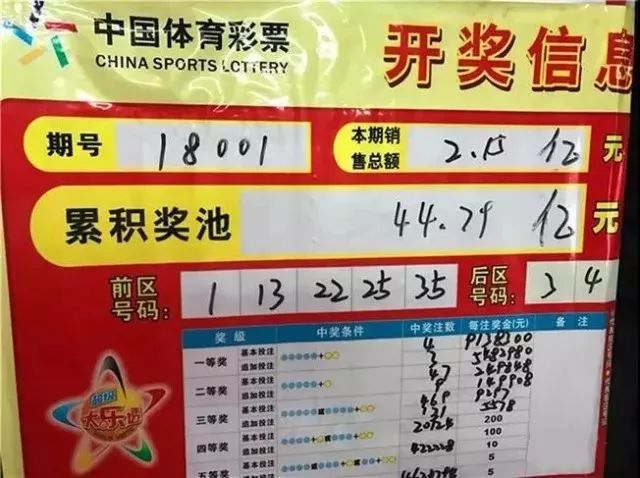 中国体育彩票
CHINA SPORTS LOTTERY
开奖信息
期号 18001 本期销售总额 2.15 亿 元
累积奖池 44.79 亿 元
前区号码: 1 13 22 25 35 后区号码: 3 4
奖级 中奖条件 中奖注数 每注奖金(元) 备注
一等奖 基本投注 4
追加投注 3
二等奖 基本投注 47
追加投注
三等奖 基本投注 469
追加投注 131 5578
四等奖 基本投注 200
追加投注 100
五等奖 基本投注 422228 10
追加投注 5
5
超级
大乐透